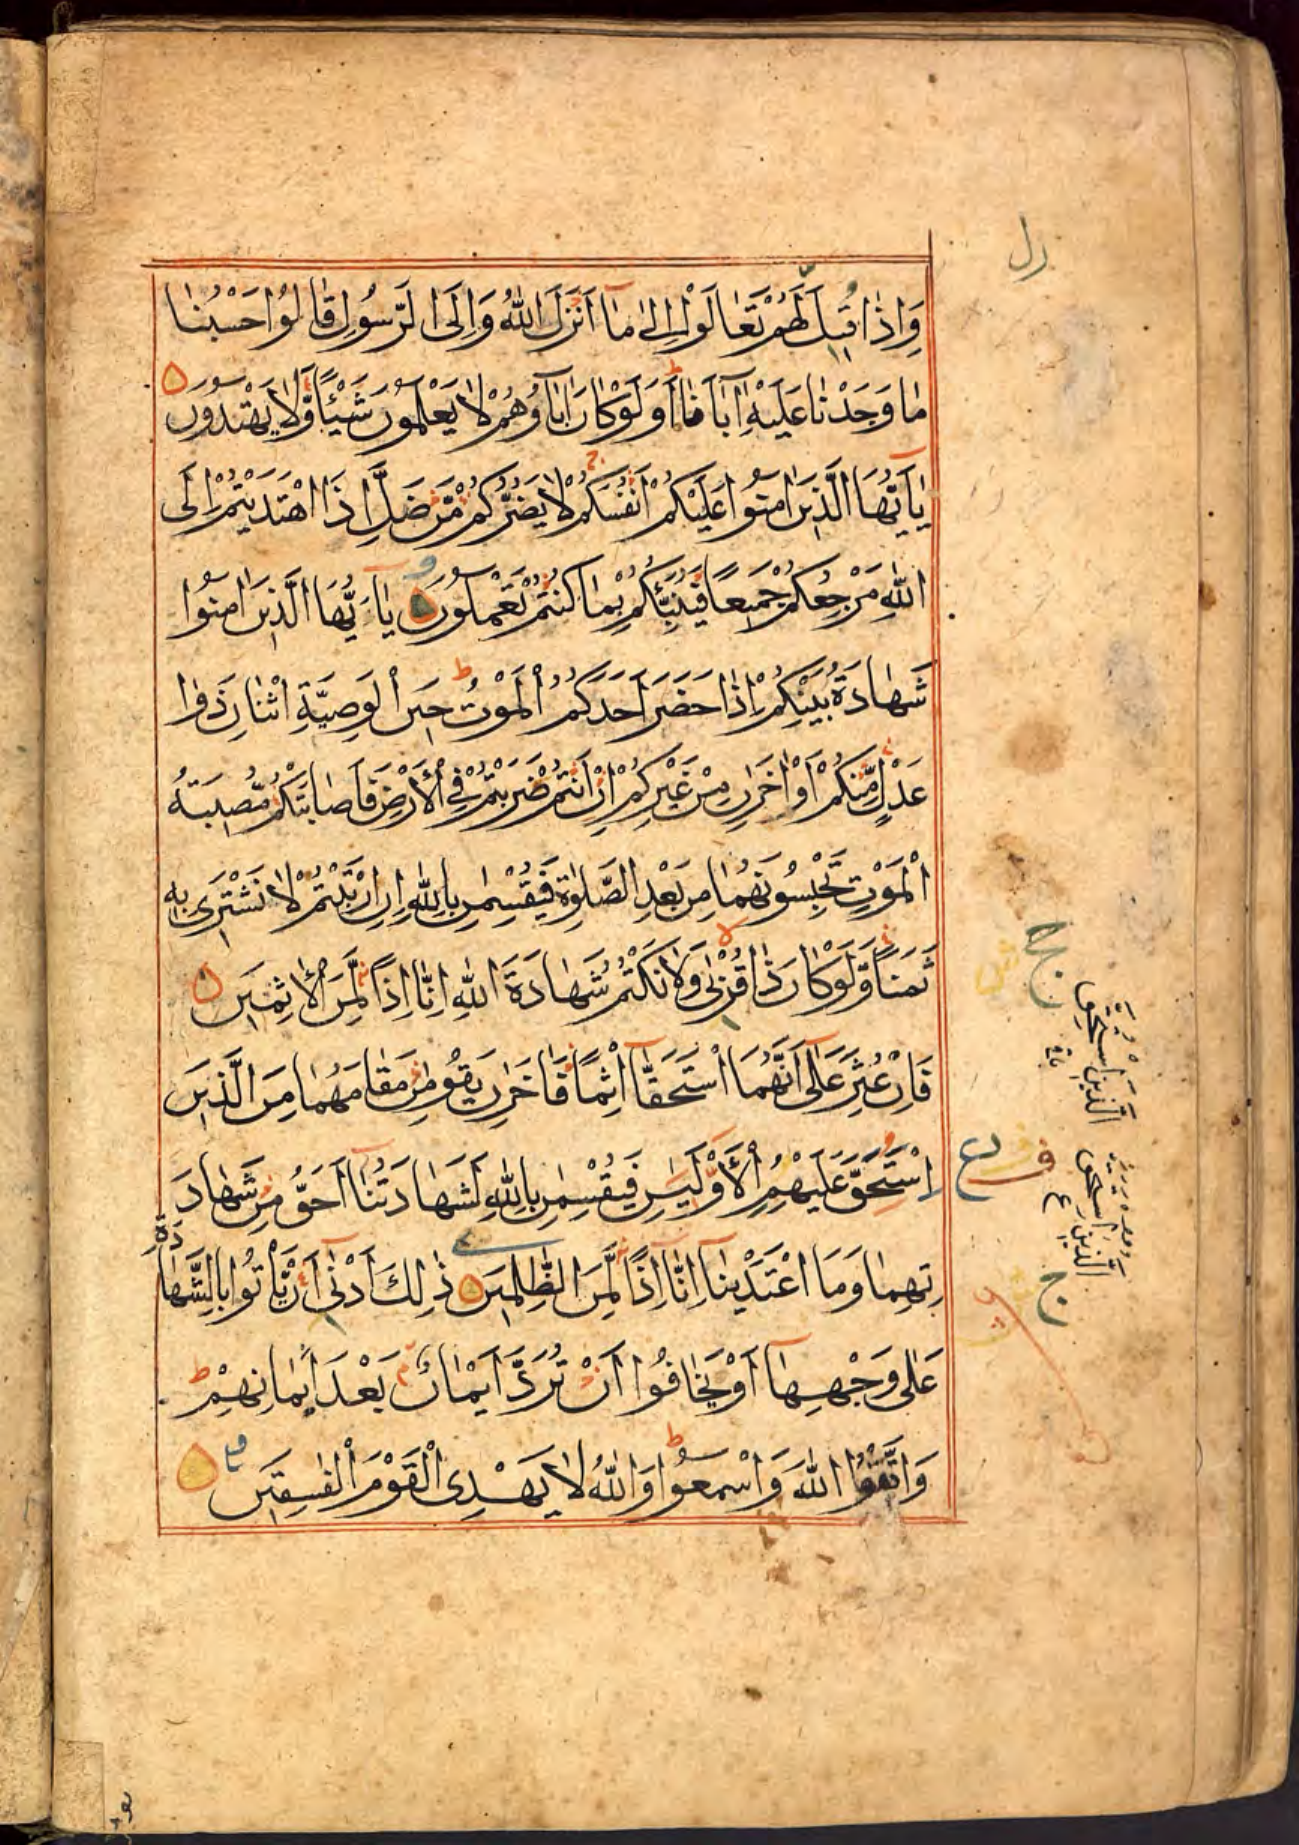 وَاِذَا قِيلَ لَهُمْ تَعَالَوْا اِلىٰ مَآ اَنْزَلَ اللهُ وَاِلَى الرَّسُولِ قَالُوا حَسْبُنَا
مَا وَجَدْنَا عَلَيْهِ اٰبَآءَنَا اَوَلَوْ كَانَ اٰبَآؤُهُمْ لَا يَعْلَمُونَ شَيْئًا وَّلَا يَهْتَدُونَ
يَآ اَيُّهَا الَّذِينَ اٰمَنُوا عَلَيْكُمْ اَنْفُسَكُمْ لَا يَضُرُّكُمْ مَّنْ ضَلَّ اِذَا اهْتَدَيْتُمْ اِلَى
اللهِ مَرْجِعُكُمْ جَمِيعًا فَيُنَبِّئُكُمْ بِمَا كُنْتُمْ تَعْمَلُونَ يَآ اَيُّهَا الَّذِينَ اٰمَنُوا
شَهَادَةُ بَيْنِكُمْ اِذَا حَضَرَ اَحَدَكُمُ الْمَوْتُ حِينَ الْوَصِيَّةِ اثْنَانِ ذَوَا
عَدْلٍ مِّنْكُمْ اَوْ اٰخَرَانِ مِنْ غَيْرِكُمْ اِنْ اَنْتُمْ ضَرَبْتُمْ فِي الْاَرْضِ فَاَصَابَتْكُمْ مُّصِيبَةُ
الْمَوْتِ تَحْبِسُونَهُمَا مِنْ بَعْدِ الصَّلٰوةِ فَيُقْسِمٰنِ بِاللهِ اِنِ ارْتَبْتُمْ لَا نَشْتَرِى بِهِ
ثَمَنًا وَّلَوْ كَانَ ذَا قُرْبٰى وَلَا نَكْتُمُ شَهَادَةَ اللهِ اِنَّا اِذًا لَّمِنَ الْاٰثِمِينَ
فَاِنْ عُثِرَ عَلٰى اَنَّهُمَا اسْتَحَقَّآ اِثْمًا فَاٰخَرَانِ يَقُومٰنِ مَقَامَهُمَا مِنَ الَّذِينَ
اسْتُحِقَّ عَلَيْهِمُ الْاَوَّلِيَيْنِ فَيُقْسِمٰنِ بِاللهِ لَشَهَادَتُنَآ اَحَقُّ مِنْ شَهَادَ
تِهِمَا وَمَا اعْتَدَيْنَآ اِنَّآ اِذًا لَّمِنَ الظّٰلِمِينَ ذٰلِكَ اَدْنٰى اَنْ يَّأْتُوا بِالشَّهَا
دَةِ
عَلٰى وَجْهِهَآ اَوْ يَخَافُوا اَنْ تُرَدَّ اَيْمَانٌ بَعْدَ اَيْمَانِهِمْ
وَاتَّقُوا اللهَ وَاسْمَعُوا وَاللهُ لَا يَهْدِى الْقَوْمَ الْفٰسِقِينَ